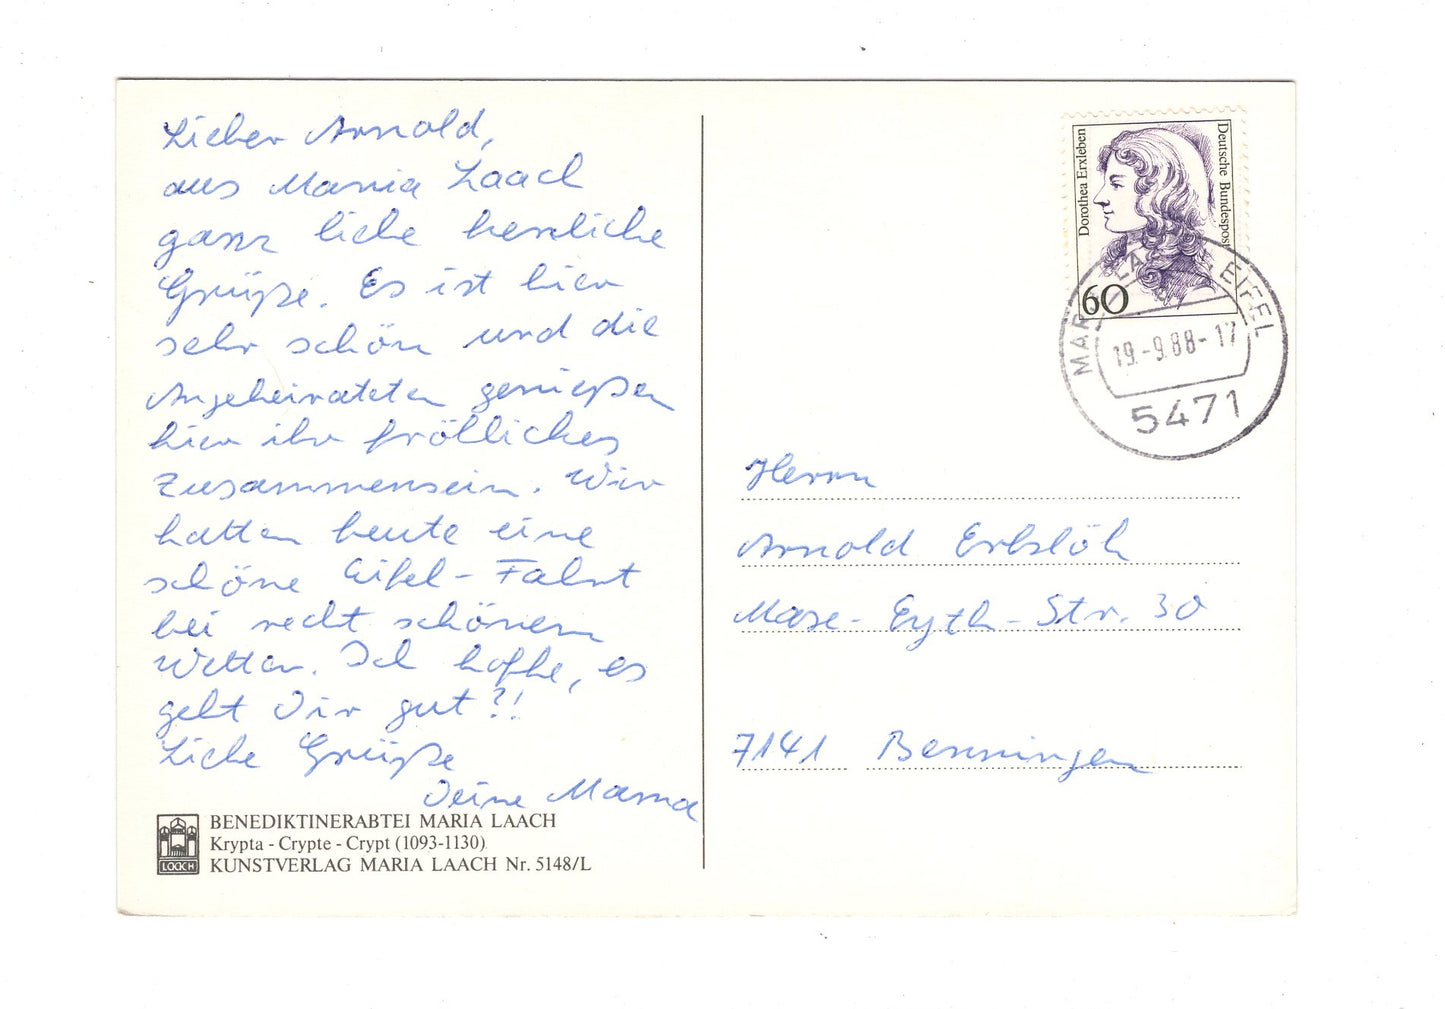 Lieber Arnold,
aus Maria Laach
ganz liebe herzliche
Grüße. Es ist hier
sehr schön und die
Angeheirateten genießen
hier ihr fröhliches
Zusammensein. Wir
hatten heute eine
schöne Eifel-Fahrt
bei recht schönem
Wetter. Ich hoffe, es
geht Dir gut?!
Liebe Grüße
Deine Mama
BENEDIKTINERABTEI MARIA LAACH
Krypta - Crypte - Crypt (1093-1130)
KUNSTVERLAG MARIA LAACH Nr. 5148/L
LAACH
Dorothea Erxleben
Deutsche Bundespost
60
MARIA LAACH, EIFEL
19.-9.88-17
5471
Herrn
Arnold Erbslöh
Max-Eyth-Str. 30
7141 Benningen